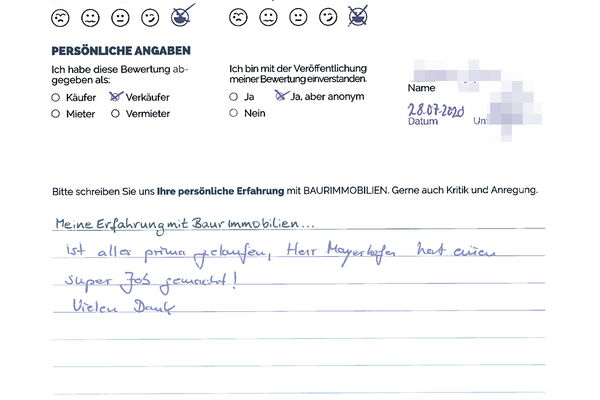 PERSÖNLICHE ANGABEN
Ich habe diese Bewertung ab-
gegeben als:
Käufer Verkäufer
Mieter Vermieter
Ich bin mit der Veröffentlichung
meiner Bewertung einverstanden.
Ja Ja, aber anonym
Nein
Name
28.07.2020
Datum Un
Bitte schreiben Sie uns Ihre persönliche Erfahrung mit BAURIMMOBILIEN. Gerne auch Kritik und Anregung.
Meine Erfahrung mit Baur Immobilien...
ist alles prima gelaufen, Herr Mayerhofer hat einen
super Job gemacht!
Vielen Dank